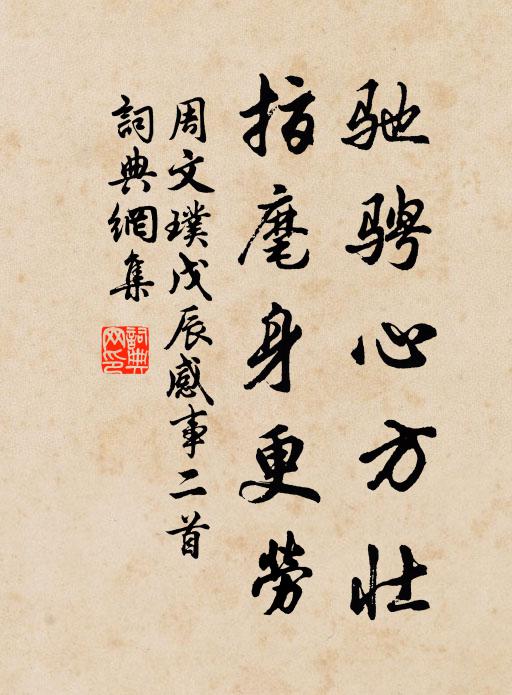 驰骋心方壮
指麾身更劳
周文璞戊辰感事二首
詞典網集
詞典網印